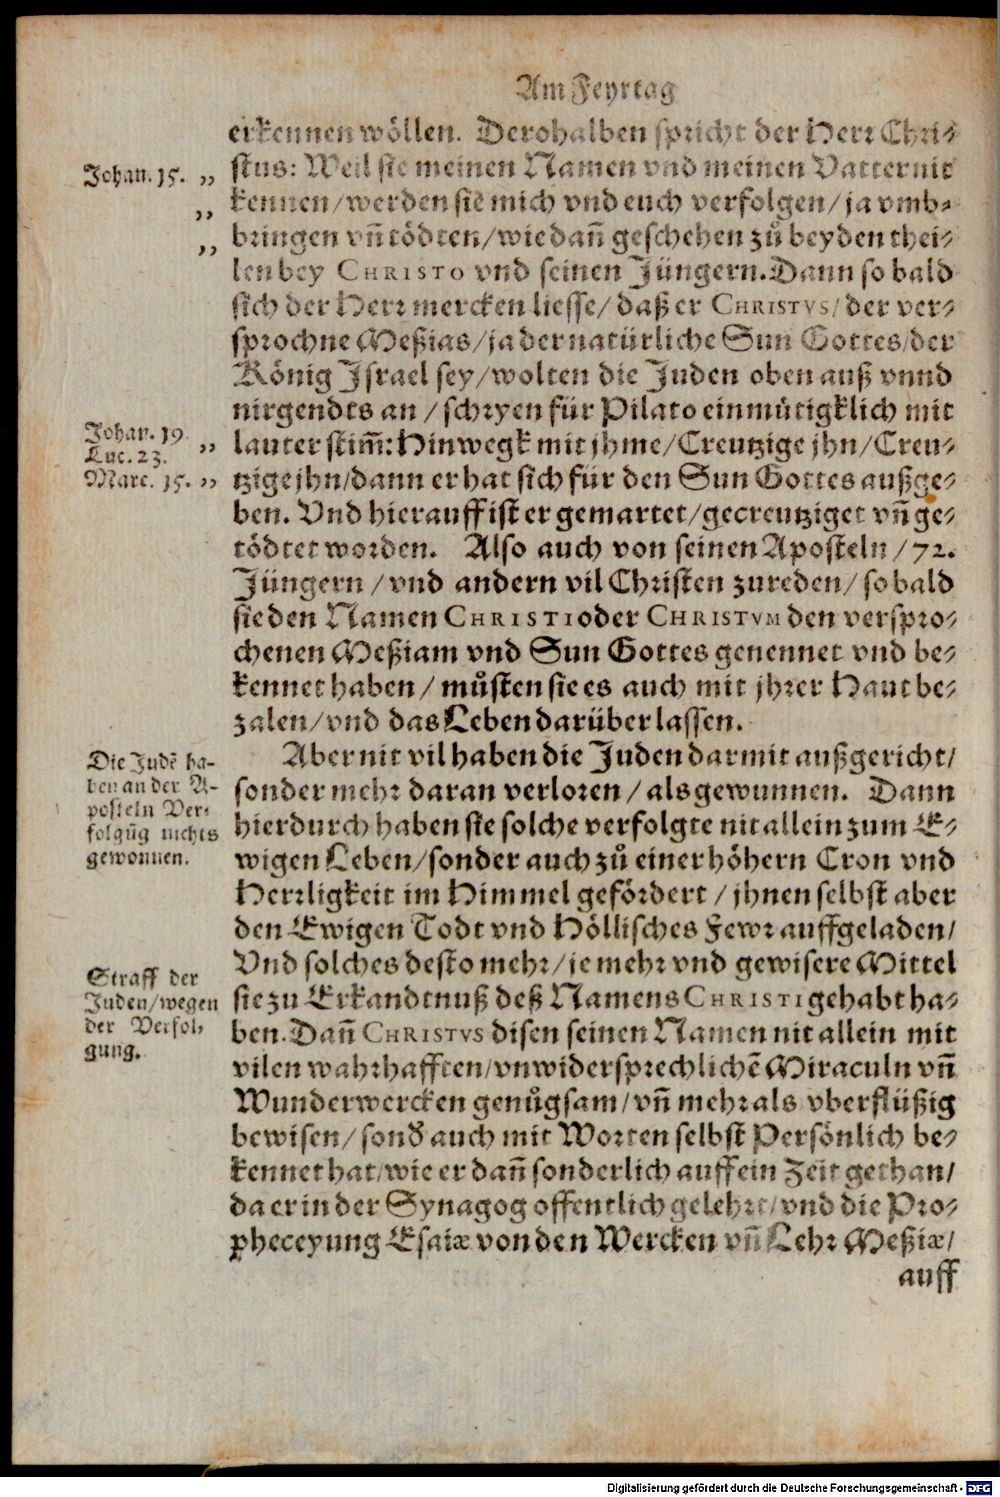 Am Feyrtag
erkennen wöllen. Derohalben spricht der Herr Chri-
Johan. 15. „ stus: Weil sie meinen Namen vnd meinen Vatter nit
„ kennen/werden sie mich vnd euch verfolgen/ja vmb-
„ bringen vñ tödten/wie dañ geschehen zů beyden thei-
len bey CHRISTO vnd seinen Jüngern. Dann so bald
sich der Herr mercken liesse/ daß er CHRISTVS/ der ver-
sprochne Meßias/ja der natürliche Sun Gottes/der
König Israel sey/wolten die Juden oben auß vnnd
nirgendts an/schryen für Pilato einmütigklich mit
Johan. 19. „ lauter stim̃: Hinwegk mit jhme/Creutzige jhn/Creu-
Luc. 23.
Marc. 15. „ tzige jhn/dann er hat sich für den Sun Gottes außge-
ben. Vnd hierauff ist er gemartet/gecreutziget vñ ge-
tödtet worden. Also auch von seinen Aposteln/72.
Jüngern/vnd andern vil Christen zureden/so bald
sie den Namen CHRISTI oder CHRISTVM den verspro-
chenen Meßiam vnd Sun Gottes genennet vnd be-
kennet haben/můsten sie es auch mit jhrer Haut be-
zalen/vnd das Leben darüber lassen.
Die Judẽ ha-
ben an der A-
posteln Ver-
folgũg nichts
gewonnen.
Aber nit vil haben die Juden darmit außgericht/
sonder mehr daran verloren/als gewunnen. Dann
hierdurch haben sie solche verfolgte nit allein zum E-
wigen Leben/sonder auch zů einer höhern Cron vnd
Herrligkeit im Himmel gefördert/jhnen selbst aber
den Ewigen Todt vnd Höllisches Fewr auffgeladen/
Straff der
Juden/wegen
der Verfol-
gung.
Vnd solches desto mehr/je mehr vnd gewisere Mittel
sie zu Erkandtnuß deß Namens CHRISTI gehabt ha-
ben. Dañ CHRISTVS disen seinen Namen nit allein mit
vilen wahrhafften/vnwidersprechlichẽ Miraculn vñ
Wunderwercken genůgsam/vñ mehr als vberflüßig
bewisen/sonď auch mit Worten selbst Persönlich be-
kennet hat/wie er dañ sonderlich auff ein Zeit gethan/
da er in der Synagog offentlich gelehrt/vnd die Pro-
pheceyung Esaiæ von den Wercken vñ Lehr Meßiæ/
auff
Digitalisierung gefördert durch die Deutsche Forschungsgemeinschaft - DFG